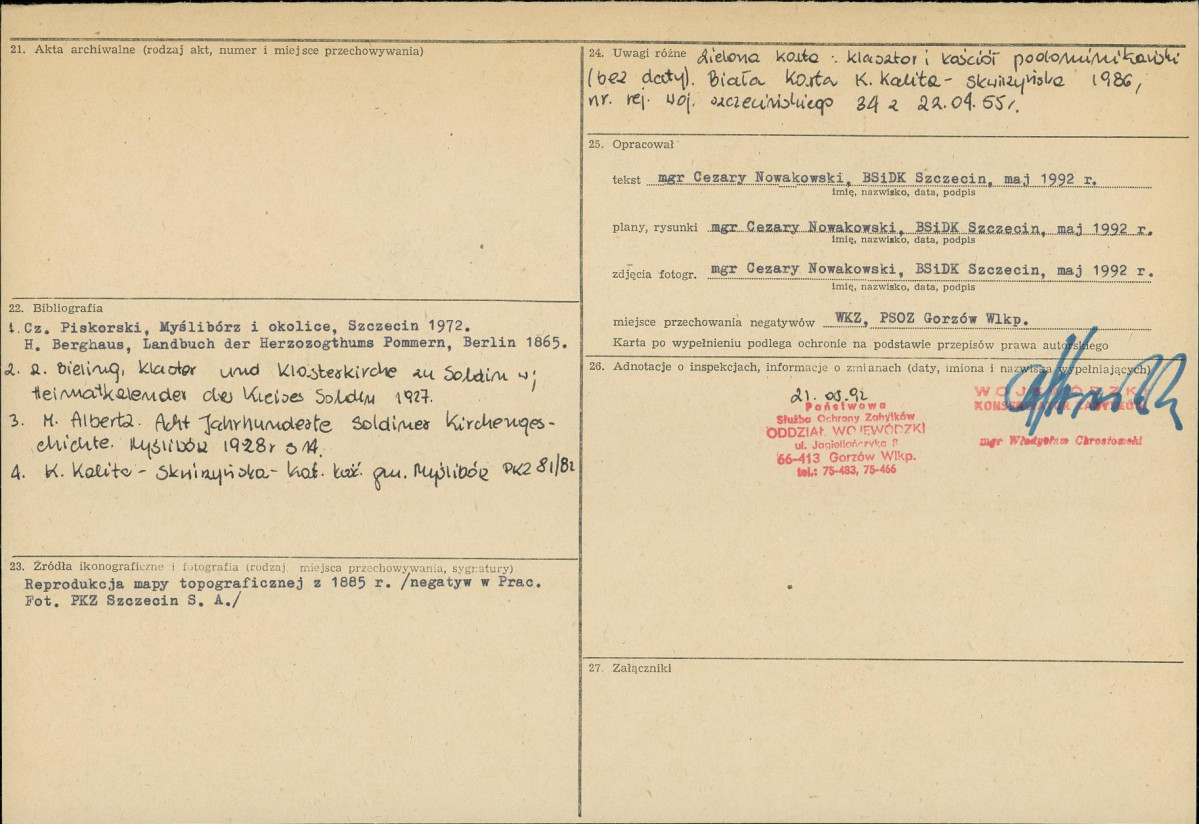 21. Akta archiwalne (rodzaj akt, numer i miejsce przechowywania)
22. Bibliografia
1. Cz. Piskorski, Myślibórz i okolice, Szczecin 1972.
H. Berghaus, Landbuch der Herzozogthums Pommern, Berlin 1865.
2. R. Bieling, Klastor und Klosterkirche zu Soldin w;
Heimatkalender des Kreises Soldin 1927.
3. M. Albertz. Acht Jahrhunderte Soldiner Kirchenges-
chichte. Myślibórz 1928r s 14.
4. K. Kalita - Skwirzyńska - kat. gm. Myślibórz PKZ 81/82
23. Źródła ikonograficzne i fotografia (rodzaj, miejsca przechowywania, sygnatury)
Reprodukcja mapy topograficznej z 1885 r. /negatyw w Prac.
Fot. PKZ Szczecin S. A./
24. Uwagi różne Zielona karta : klasztor i kościół podominikański
(bez daty). Biała Karta K. Kalita - Skwirzyńska 1986,
nr. rej. woj. szczecińskiego 34 z 22.04.55r.
25. Opracował
tekst mgr Cezary Nowakowski, BSiDK Szczecin, maj 1992 r.
imię, nazwisko, data, podpis
plany, rysunki mgr Cezary Nowakowski, BSiDK Szczecin, maj 1992 r.
imię, nazwisko, data, podpis
zdjęcia fotogr. mgr Cezary Nowakowski, BSiDK Szczecin, maj 1992 r.
imię, nazwisko, data, podpis
miejsce przechowania negatywów WKZ, PSOZ Gorzów Wlkp.
Karta po wypełnieniu podlega ochronie na podstawie przepisów prawa autorskiego
26. Adnotacje o inspekcjach, informacje o zmianach (daty, imiona i nazwiska wypełniających)
21.08.92
Państwowa
Służba Ochrony Zabytków
ODDZIAŁ WOJEWÓDZKI
ul. Jagiellończyka 8
66-413 Gorzów Wlkp.
tel.: 75-483, 75-466
WOJEWÓDZKI
KONSERWATOR ZABYTKÓW
mgr Władysław Chrostowski
27. Załączniki